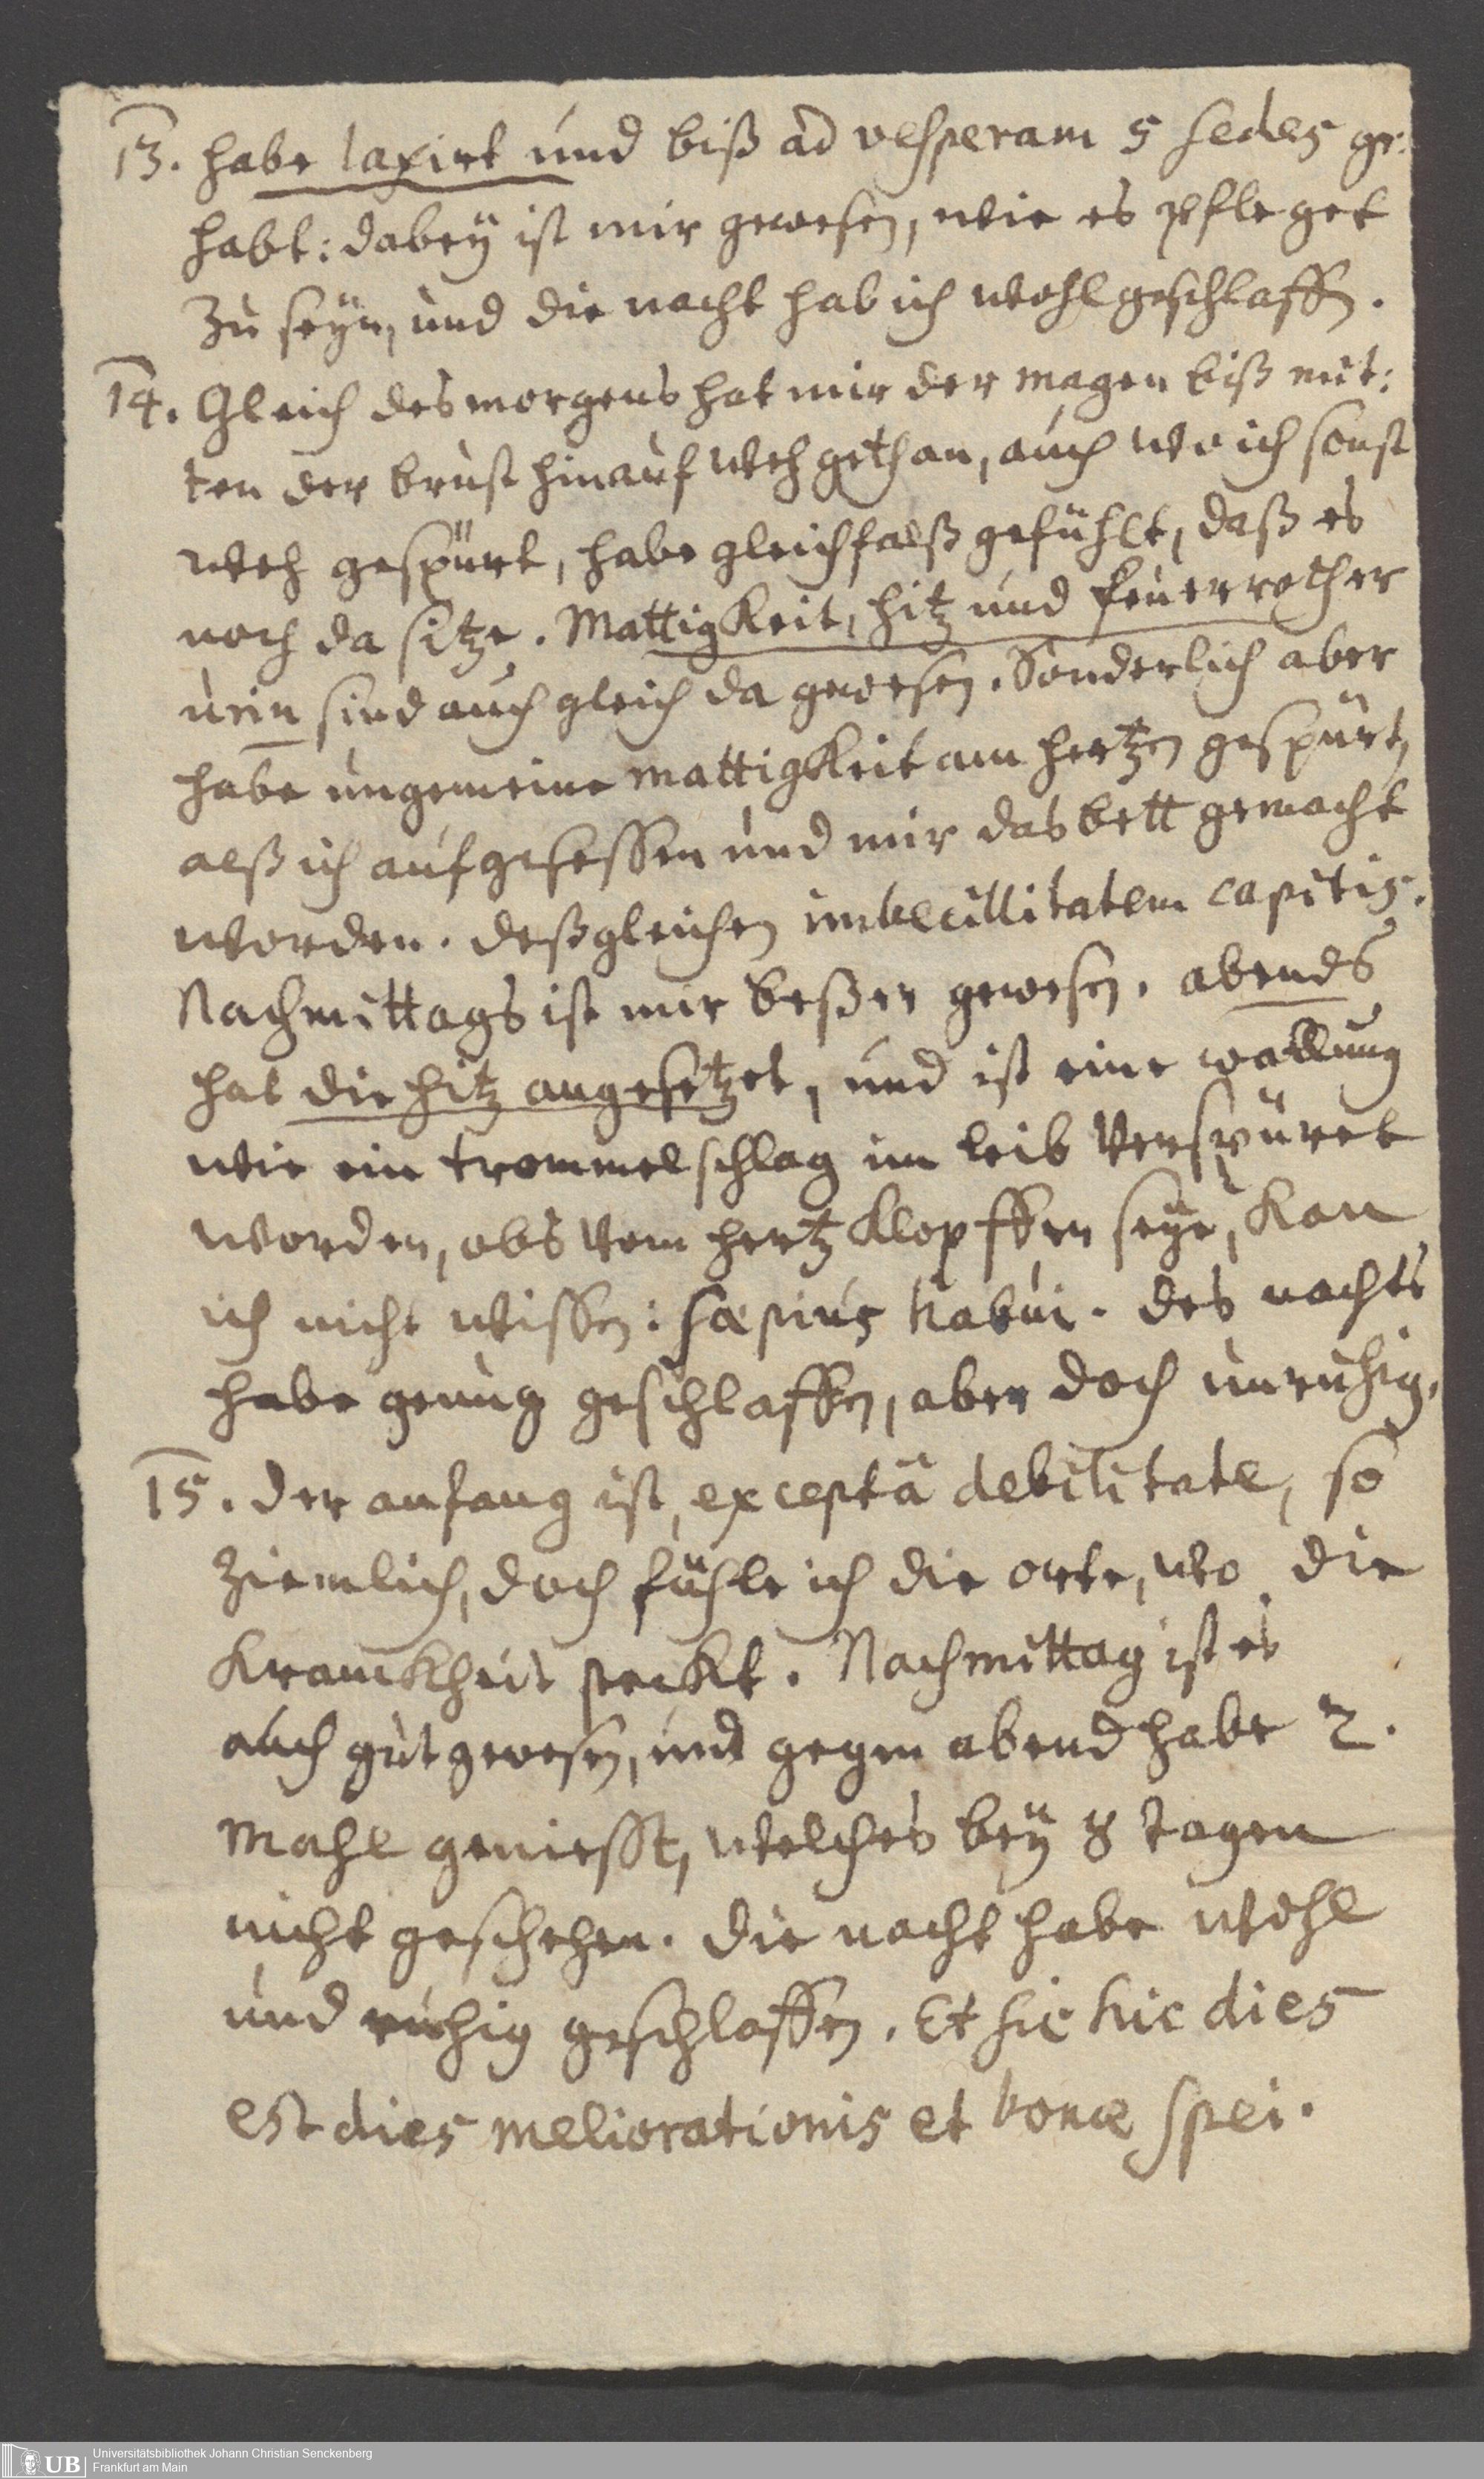 13. habe laxirt und biß ad vesperam 5 sedes ge:
habt: dabeÿ ist mir gewesen, wie es pfleget
zu seÿn, und die nacht hab ich wohl geschlaffen.
14. Gleich des morgens hat mir der magen biß mit:
ten der brust hinauf weh gethan, auch wo ich sonst
weh gespürt, habe gleichfalß gefühlt, daß es
noch da sitze. Mattigkeit, hitz und feuerrother
urin sind auch gleich da gewesen. Sonderlich aber
habe ungemeine mattigkeit am hertzen gespürt,
alß ich aufgesessen und mir das bett gemacht
worden. deßgleichen imbecillitatem capitis.
Nachmittags ist mir beßer gewesen. abends
hat die hitz angesetzet, und ist eine wallung
wie ein trommelschlag im leib verspüret
worden, obs vom hertz klopffen seÿe, kan
ich nicht wissen: sæpius habui. des nachts
habe genug geschlaffen, aber doch unruhig.
15. der anfang ist, exceptâ debilitate, so
ziemlich, doch fühle ich die orte, wo die
Kranckheit steckt. Nachmittag ist es
auch gut gewesen, und gegen abend habe 2.
mahl geniesst, welches beÿ 8 tagen
nicht geschehen. die nacht habe wohl
und ruhig geschlaffen. Et sic hic dies
est dies meliorationis et bonæ spei.
UB
Universitätsbibliothek Johann Christian Senckenberg
Frankfurt am Main